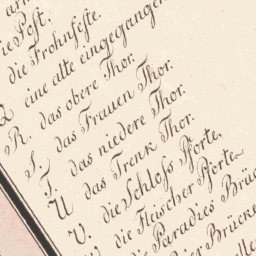 die Post.
die Frohnfeste.
Q eine alte eingegangen
R. das obere Thor.
S. das Frauen Thor.
T. das niedere Thor.
U das Trenk Thor.
V. die Schloss Pforte.
die Fleischer Pforte.
die Paradies Brüc
Brücke